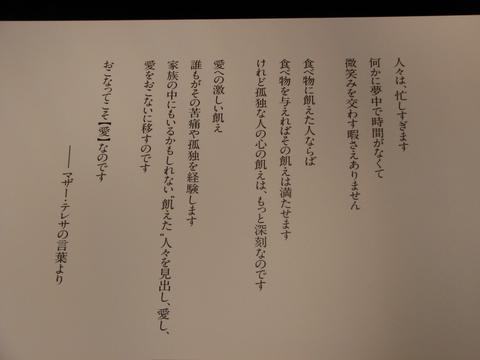 人々は、忙しすぎます
何かに夢中で時間がなくて
微笑みを交わす暇さえありません
食べ物に飢えた人ならば
食べ物を与えればその飢えは満たせます
けれど孤独な人の心の飢えは、もっと深刻なのです
愛への激しい飢え
誰もがその苦痛や孤独を経験します
家族の中にもいるかもしれない"飢えた"人々を見出し、愛し、
愛をおこないに移すのです
おこなってこそ【愛】なのです
――マザー・テレサの言葉より